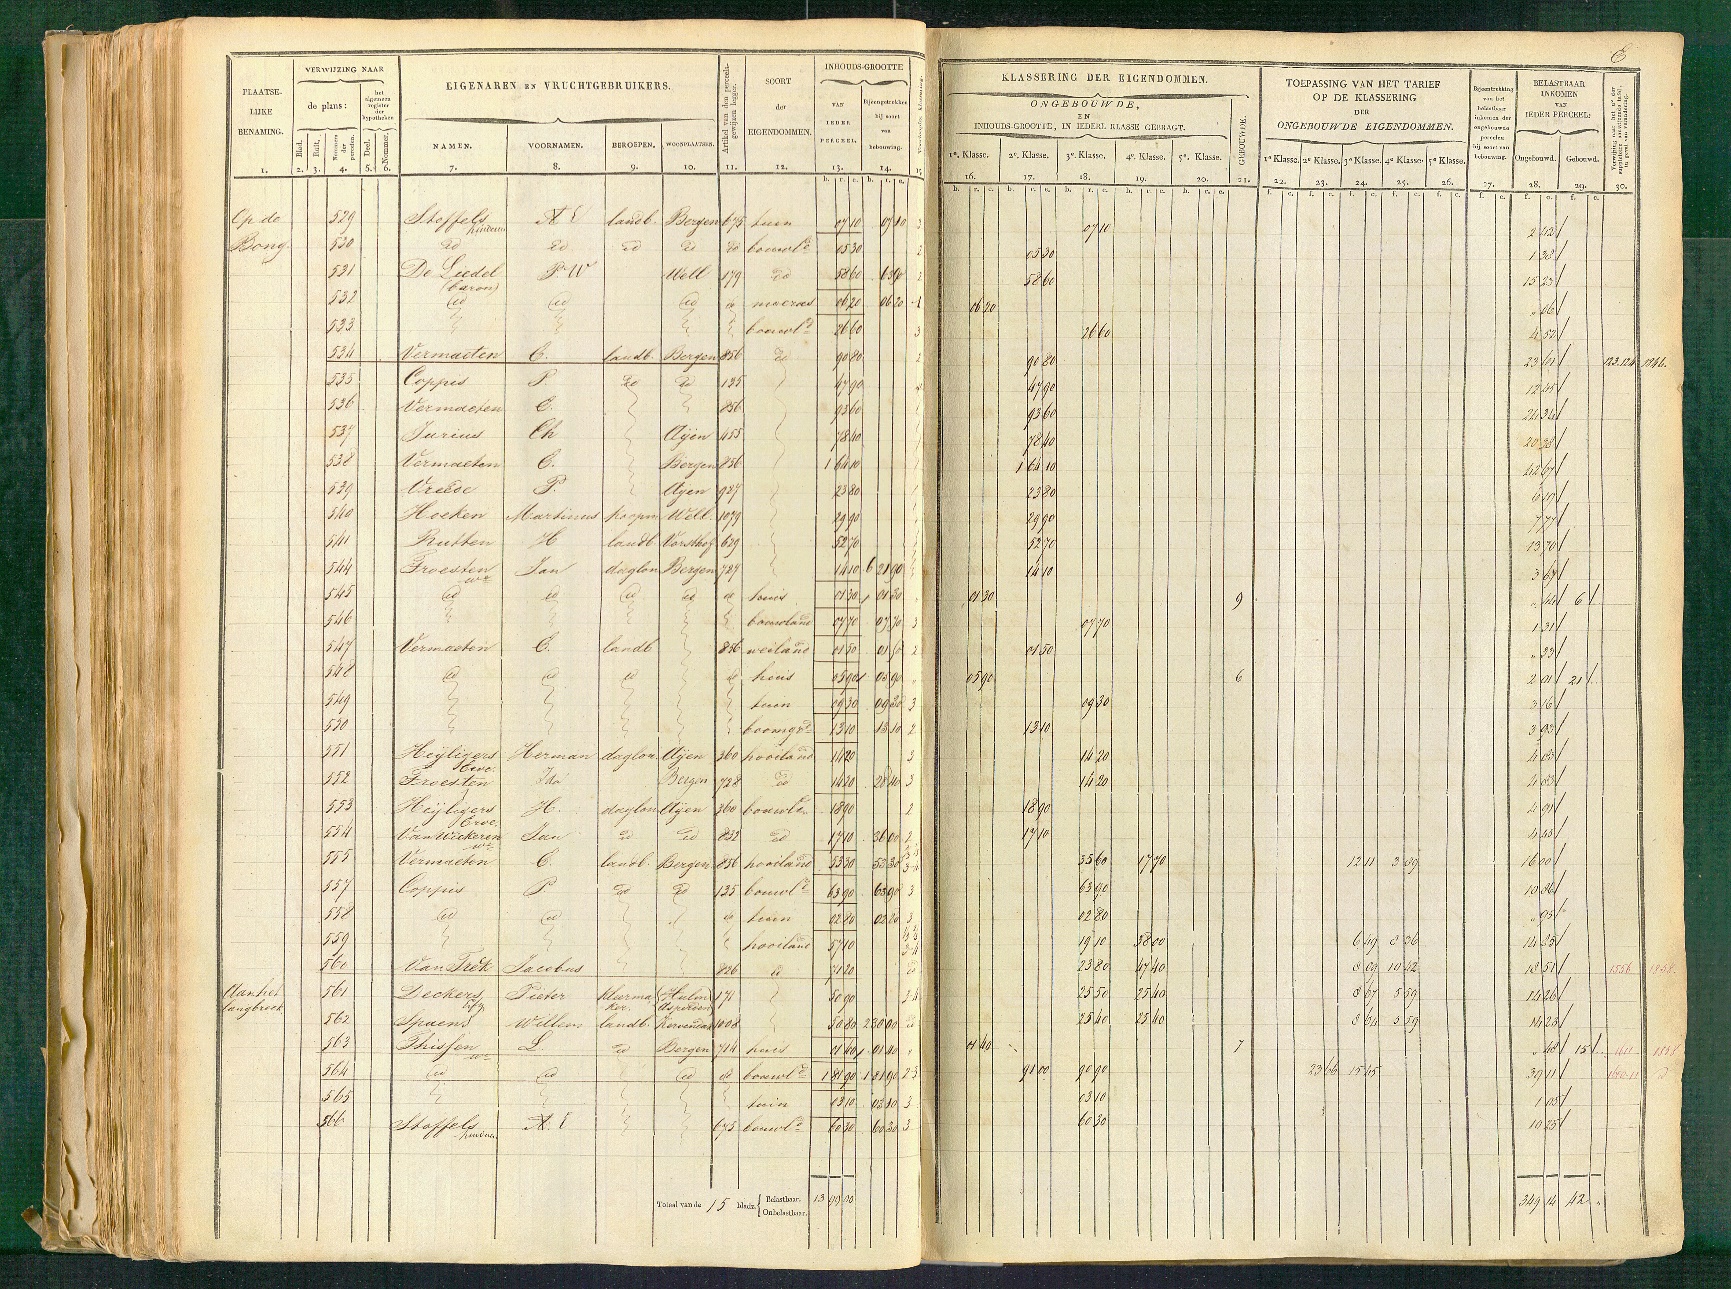 E
PLAATSELIJKE BENAMING. 1.
VERWIJZING NAAR
de plans:
Blad. 2. Bult. 3. Nommers der perceelen. 4.
het algemeen register der hypotheken
Deel. 5. Nommer. 6.
EIGENAREN EN VRUCHTGEBRUIKERS.
NAMEN. 7. VOORNAMEN. 8. BEROEPEN. 9. WOONPLAATSEN. 10.
Artikel van den perceelsgewijzen legger. 11.
SOORT der EIGENDOMMEN. 12.
INHOUDS-GROOTTE
VAN IEDER PERCEEL. 13.
Bijeengetrokken bij soort van bebouwing. 14.
KLASSERING DER EIGENDOMMEN.
ONGEBOUWDE,
EN
INHOUDS-GROOTTE, IN IEDERE KLASSE GEBRAGT.
1e. Klasse. 16. 2e. Klasse. 17. 3e. Klasse. 18. 4e. Klasse. 19. 5e. Klasse. 20.
GEBOUWDE. 21.
TOEPASSING VAN HET TARIEF
OP DE KLASSERING
DER
ONGEBOUWDE EIGENDOMMEN.
1e Klasse. 22. 2e Klasse. 23. 3e Klasse. 24. 4e Klasse. 25. 5e Klasse. 26.
Bijeentrekking van het belastbaar inkomen der ongebouwde perceelen bij soort van bebouwing. 27.
BELASTBAAR INKOMEN VAN IEDER PERCEEL:
Ongebouwd. 28. Gebouwd. 29.
30.
Op de 529 Stoffels kinderen A landb. Bergen 675 tuin 07 10 07 10 3 07 10 2 12
Bong 530 do do do do do bouwld 05 30 2 05 30 1 38
531 De Liedel (baron) P W Well 179 do 58 60 2 58 60 15 23
532 do do do do moeras 06 20 06 20 1 06 20 " 06
533 bouwld 26 60 3 26 60 4 52
534 Vermaeten C. landb. Bergen 856 do 90 80 2 90 80 23 61 123.124 1846.
535 Coppis P. do do 135 47 90 47 90 12 45
536 Vermaeten C. 856 93 60 93 60 24 34
537 Jurius Ch Aijen 455 78 40 78 40 20 38
538 Vermaeten C. Bergen 856 1 64 10 1 64 10 42 67
539 Vreede P. Aijen 927 23 80 23 80 6 19
540 Hoeken Martinus koopm Well. 1079 29 90 29 90 7 77
541 Rutten H landb Vorsthof 629 52 70 52 70 13 70
544 Froesten we Jan daglon Bergen 727 14 10 6 21 90 14 10 3 67
545 do do do do do huis 01 30 01 30 01 30 9 " 44 6
546 bouwland 07 70 07 70 3 07 70 1 31
547 Vermaeten C. landb 856 weiland 01 50 01 50 2 01 50 " 33
548 do do do do huis 05 90 05 90 05 90 6 2 01 21
549 tuin 09 30 09 30 3 09 30 3 16
550 boomgd 13 10 13 10 2 13 10 3 93
551 Heijligers Erve. Herman daglon Aijen 360 hooiland 14 20 3 14 20 4 83
552 Froesten Ida Bergen 728 do 14 20 28 40 3 14 20 4 83
553 Heijligers Erve. H. daglon Aijen 360 bouwld 18 90 2 18 90 4 91
554 Van Wickeren we Jan do do 832 do 17 10 36 00 2 17 10 4 45
555 Vermaeten C. landb. Bergen 856 hooiland 53 30 53 30 35 60 17 70 12 11 3 89 16 00
557 Coppis P do do 135 bouwld 63 90 63 90 3 63 90 10 86
558 do do do tuin 02 80 02 80 3 02 80 " 95
559 hooiland 57 10 19 10 38 00 6 49 8 36 14 85
560 Van Treek Jacobus 826 do 71 20 23 80 47 40 8 09 10 42 18 51 1556 1858.
Aan het 561 Deckers Pieter kleermaker 171 50 90 3 4 25 50 25 40 8 67 5 59 14 26
langbroek
562 Spaens Willem landb. Kervendonk 1008 50 80 2 30 00 25 40 25 40 8 64 5 59 14 23
563 Thissen we L do Bergen 714 huis 01 40 01 40 01 40 7 " 48 15
564 do do do do bouwld 1 81 90 1 81 90 2 3 91 00 90 90 23 66 15 45 39 11
565 tuin 03 10 03 10 3 03 10 1 05
566 Stoffels kinderen A. 675 bouwld 60 30 60 30 3 60 30 10 25
Totaal van de 15 bladz. Belastbaar. 13 99 00 349 14 42 "
Onbelastbaar.